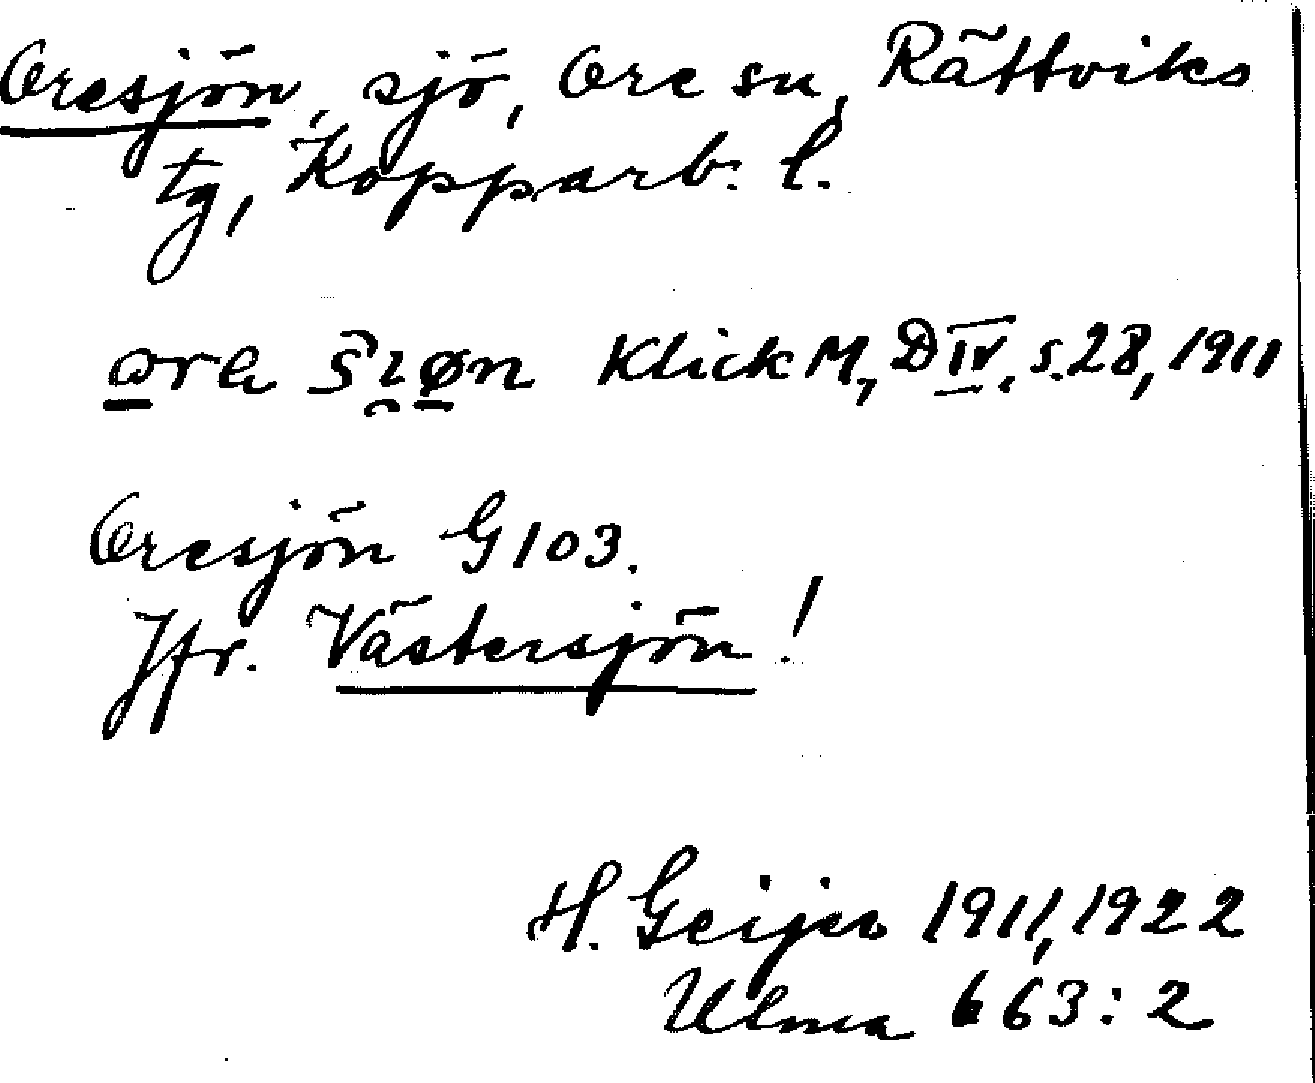 Oresjön, sjö, Ore sn, Rättviks
tg, Kopparb. l.
Klick M, D IV, s. 28, 1911
Oresjön G 103.
Jfr. Västersjön!
H. Geijer 1911, 1922
Ulma 663:2